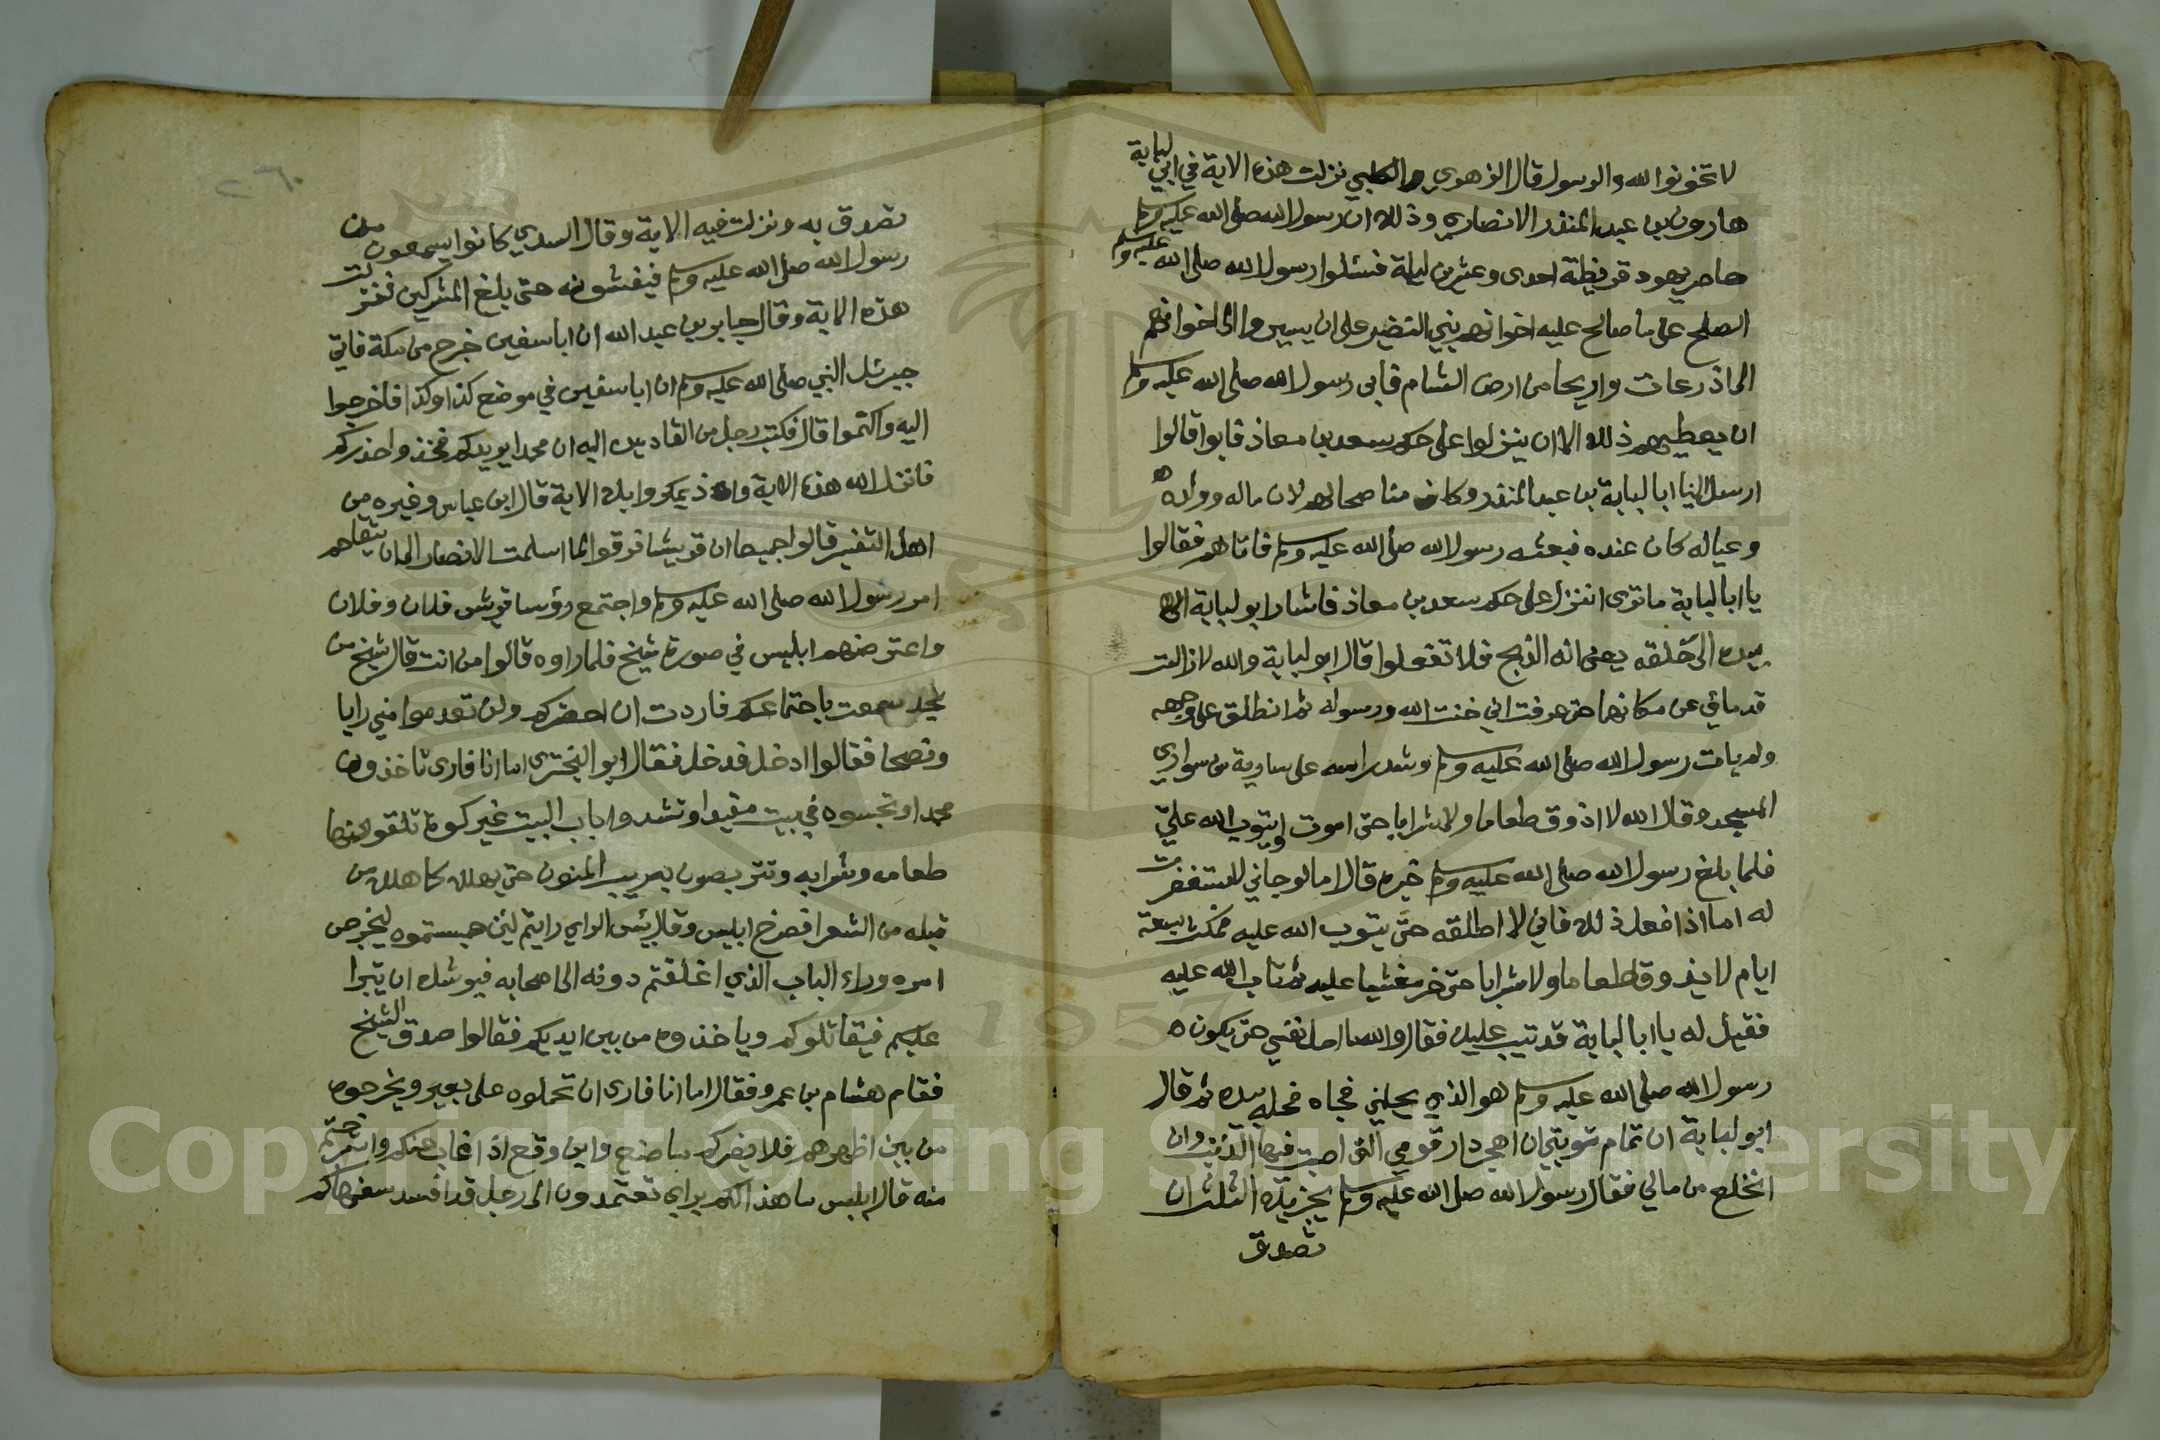 لا تخونوا الله والرسول قال الزهري والكلبي نزلت هذه الاية في ابي لبابة
هارون بن عبد المنذر الانصاري وذلك ان رسول الله صلى الله عليه وسلم
حاصر يهود قريظة احدى وعشرين ليلة فسئلوا رسول الله صلى الله عليه وسلم
الصلح على ما صالح عليه اخوانهم بني النضير على ان يسيروا الى اخوانهم
الى اذرعات واريحا من ارض الشام فابى رسول الله صلى الله عليه وسلم
ان يعطيهم ذلك الا ان ينزلوا على حكم سعد بن معاذ فابوا قالوا
ارسل الينا ابا لبابة بن عبد المنذر وكان مناصحا لهم لان ماله وولده
وعياله كان عنده فبعثه رسول الله صلى الله عليه وسلم فاتاهم فقالوا
يا ابا لبابة ما ترى اننزل على حكم سعد بن معاذ فاشار ابو لبابة
بيده الى حلقه يعني انه الذبح فلا تفعلوا قال ابو لبابة والله لا زالت
قدماي عن مكانهما حتى عرفت اني خنت الله ورسوله ثم انطلق على وجهه
ولم يات رسول الله صلى الله عليه وسلم وشد راسه على سارية من سواري
المسجد وقال الله لا اذوق طعاما ولا شرابا حتى اموت او يتوب الله علي
فلما بلغ رسول الله صلى الله عليه وسلم خبره قال اما لو جاني لاستغفرت
له اما اذا فعل ذلك فاني لا اطلقه حتى يتوب الله عليه فمكث سبعة
ايام لا يذوق طعاما ولا شرابا حتى خر مغشيا عليه ثم تاب الله عليه
فقيل له يا ابا لبابة قد تيب عليك فقال والله ما احل نفسي حتى يكون
رسول الله صلى الله عليه وسلم هو الذي يحلني فجاه فحله بيده ثم قال
ابو لبابة ان تمام توبتي ان اهجر دار قومي التي اصبت فيها الذنب وان
انخلع من مالي فقال رسول الله صلى الله عليه وسلم يجزيك الثلث ان
تصدق
٢٠٦
تصدق به ونزلت فيه الاية وقال السدي كانوا يسمعون من
رسول الله صلى الله عليه وسلم فيفشونه حتى بلغ المشركين فنزلت
هذه الاية وقال جابر بن عبد الله ان ابا سفين خرج من مكة فاتى
جبرئل النبي صلى الله عليه وسلم ان ابا سفين في موضع كذا وكذا فاخرجوا
اليه واكتموا قال فكتب رجل من اليه ان محمدا يريدكم فخذوا حذركم
فانزل الله هذه الاية واذ يمكر بك الاية قال ابن عباس وغيره من
اهل التفسير قالوا جميعا ان قريشا فرقوا لما اسلمت الانصار ان يتفاقم
امر رسول الله صلى الله عليه وسلم واجتمع رؤسا قريش فلان وفلان
واعترضهم ابليس في صورة شيخ فلما راوه قالوا من انت قال شيخ من
نجد سمعت باجتماعكم فاردت ان احضركم ولن تعدموا مني رايا
ونصحا فقالوا ادخل فدخل فقال ابو البختري اما انا فارى تاخذون
محمدا وتحبسوه في بيت مقيدا وتشدوا باب البيت غير كوة تلقون منها
طعامه وشرابه وتتربصون به ريب المنون حتى يهلك كما هلك من
قبله من الشعرا فصرخ ابليس وقال بئس الراي رايتم لئن حبستموه ليخرجن
امره وراء الباب الذي اغلقتم دونه الى اصحابه فيوشك ان يثبوا
عليكم فيقاتلوكم وياخذوه من بين ايديكم فقالوا صدق الشيخ
فقام هشام بن عمرو فقال اما انا فارى ان تحملوه على بعير وتخرجوه
من بين اظهرهم فلا يضركم ما صنع واين وقع اذا غاب عنكم واسترحتم
منه قال ابليس ما هذا لكم براي تعتمدون الى رجل قد افسد سفهاكم
Copyright © King Saud University
1957